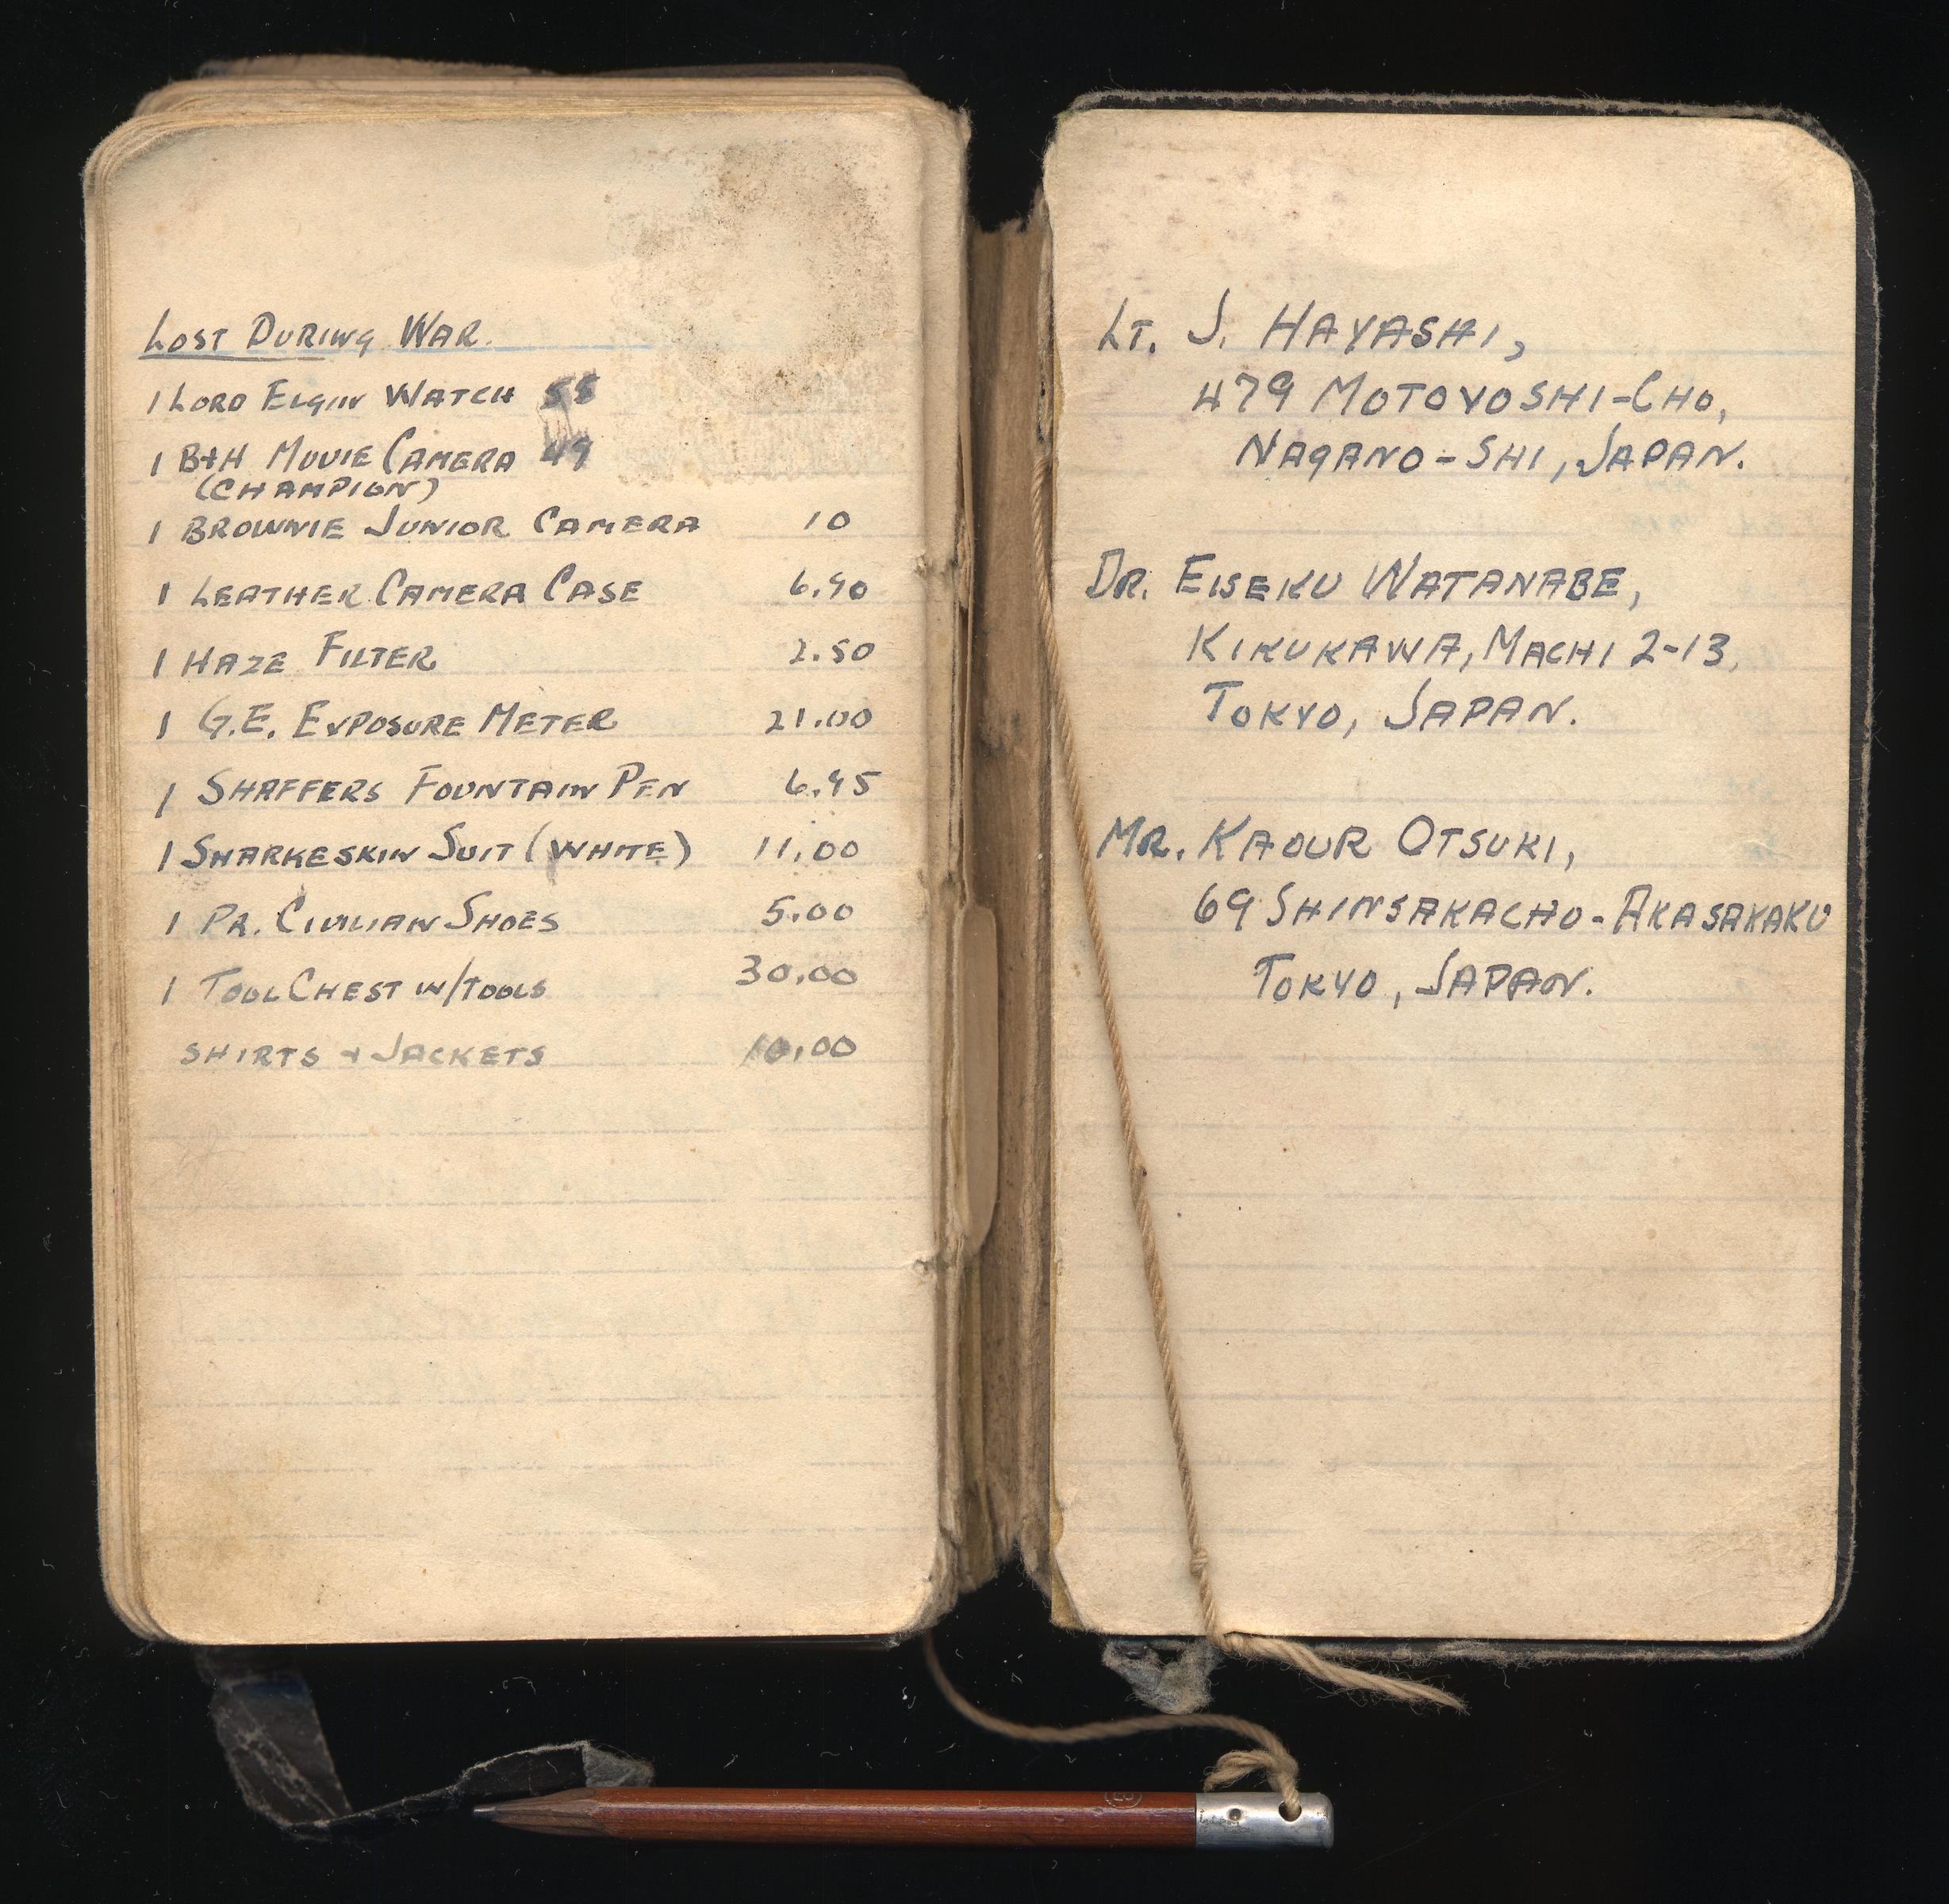 LOST DURING WAR.
1 LORD ELGIN WATCH 55
1 B+H MOVIE CAMERA 49
(CHAMPION)
1 BROWNIE JUNIOR CAMERA 10
1 LEATHER CAMERA CASE 6.90
1 HAZE FILTER 2.50
1 G.E. EXPOSURE METER 21.00
1 SHAFFERS FOUNTAIN PEN 6.95
1 SHARKESKIN SUIT (WHITE) 11.00
1 PR. CIVILIAN SHOES 5.00
1 TOOL CHEST W/TOOLS 30.00
SHIRTS + JACKETS 10.00
LT. J. HAYASHI,
479 MOTOYOSHI-CHO,
NAGANO-SHI, JAPAN.
DR. EISEKU WATANABE,
KIKUKAWA, MACHI 2-13,
TOKYO, JAPAN.
MR. KAOUR OTSUKI,
69 SHINSAKACHO-AKASAKAKU
TOKYO, JAPAN.